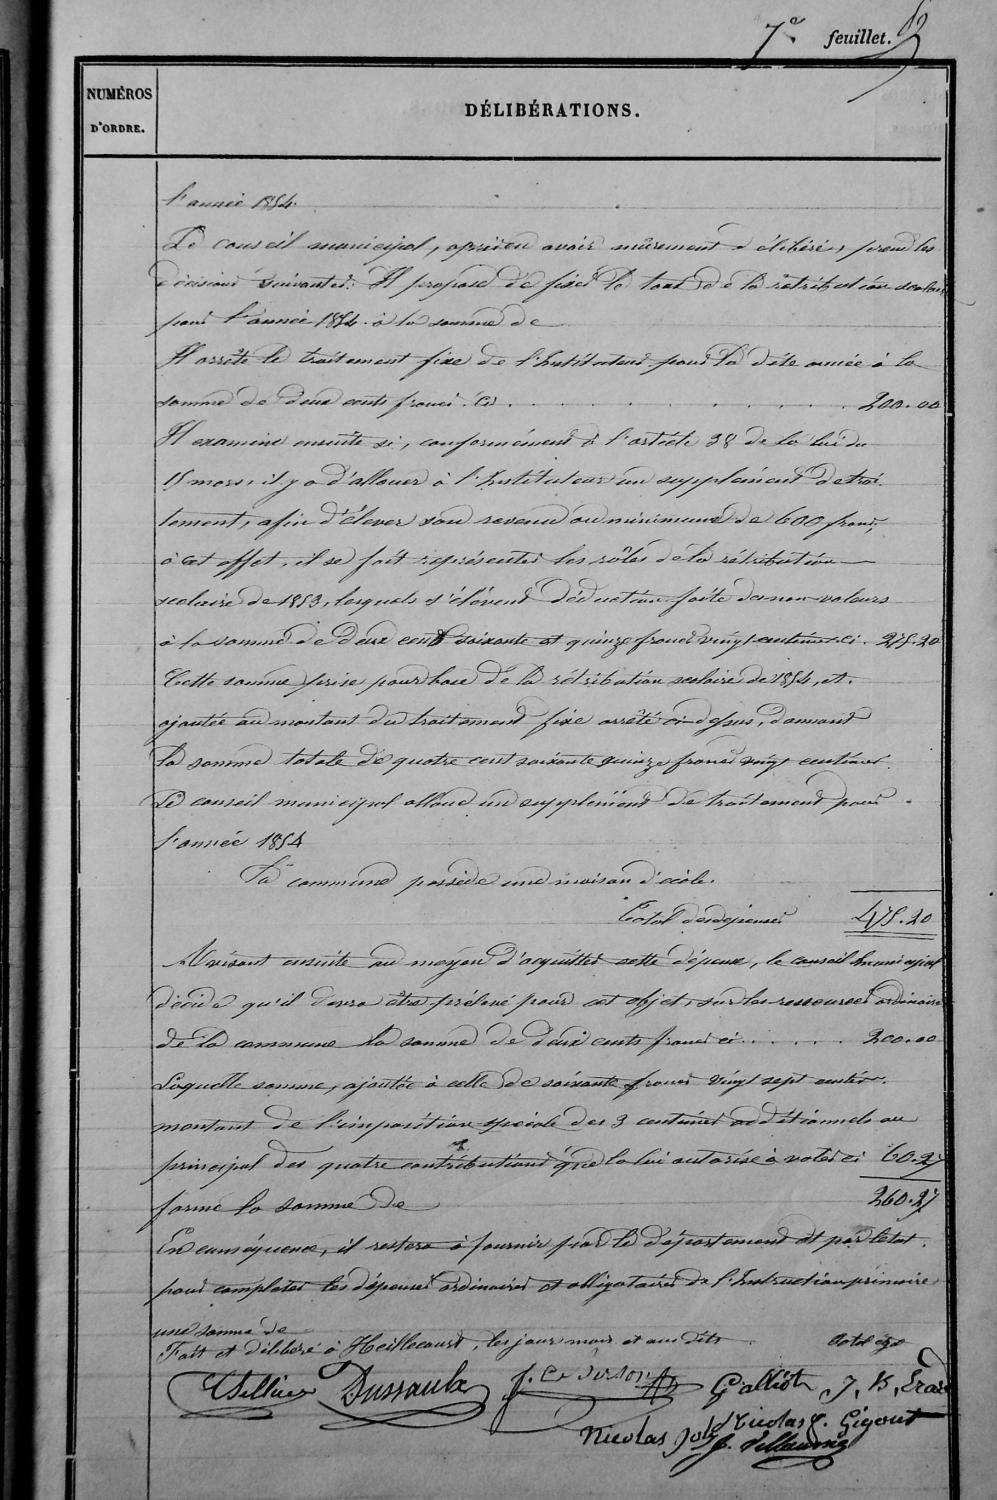 7e feuillet.
NUMÉROS
D'ORDRE.
DÉLIBÉRATIONS.
l'année 1854.
Le conseil municipal, après en avoir mûrement délibéré, prend les
décisions suivantes: Il propose de fixer le taux de la rétribution scolaire
pour l'année 1854 à la somme de
Il arrête le traitement fixe de l'Instituteur pour la dite année à la
somme de deux cents francs. Ci . . . . . . . . 200.00
Il examine ensuite si, conformément à l'article 38 de la loi du
15 mars, il y a d'allouer à l'Instituteur un supplément de trai-
tement, afin d'élever son revenu au minimum de 600 francs,
à cet effet, il se fait représenter les rôles de la rétribution
scolaire de 1853, lesquels s'élèvent déduction faite de non valeurs
à la somme de deux cent soixante et quinze francs vingt centimes ci. 275.20
Cette somme prise pour base de la rétribution scolaire de 1854, et
ajoutée au montant du traitement fixe arrêté ci-dessus, donnent
la somme totale de quatre cent soixante quinze francs vingt centimes.
Le conseil municipal alloue un supplément de traitement pour
l'année 1854
La commune possède une maison d'école.
Total des dépenses 475.20
Avisant ensuite au moyen d'acquitter cette dépense, le conseil municipal
décide qu'il devra être prélevé pour cet objet, sur les ressources ordinaires
de la commune la somme de deux cents francs ci . . . . . . 200.00
Laquelle somme, ajoutée à celle de soixante francs vingt sept centim.
montant de l'imposition spéciale des 3 centimes additionnels au
principal des quatre contributions que la loi autorise à voter ci 60.27
forme la somme de 260.27
En conséquence, il restera à fournir par le département et par l'état.
pour completer les dépenses ordinaires et obligatoires de l'Instruction primaire
une somme de
Fait et délibéré à Heillecourt, les jour mois et an dits.
Dussaulx
Galliot J. B. Erard
Nicolas Nicolas J. Gigout